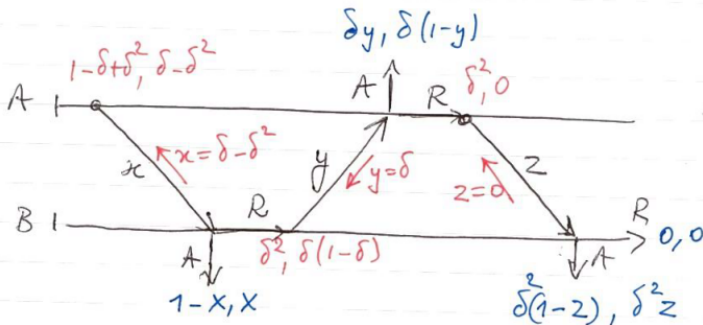 δy, δ(1-y)
1-δ+δ², δ-δ²
A
R
δ², 0
A
x
x=δ-δ²
y
y=δ
z
z=0
B
R
R
0, 0
A
δ², δ(1-δ)
A
1-x, x
δ²(1-z), δ²z